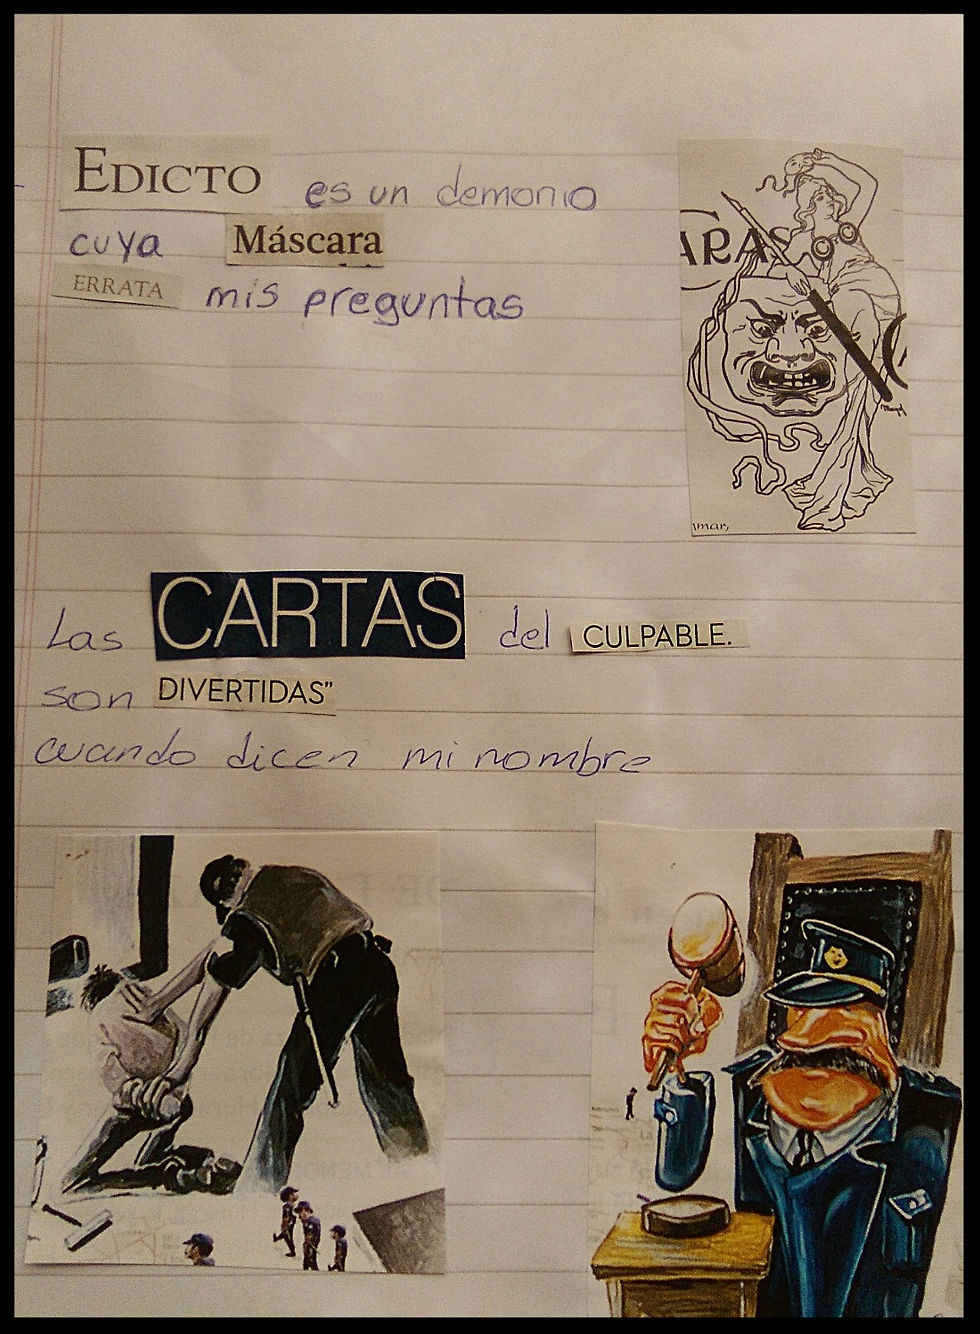 EDICTO es un demonio
cuya Máscara
ERRATA mis preguntas
ARAS
Las CARTAS del CULPABLE.
son DIVERTIDAS”
cuando dicen mi nombre